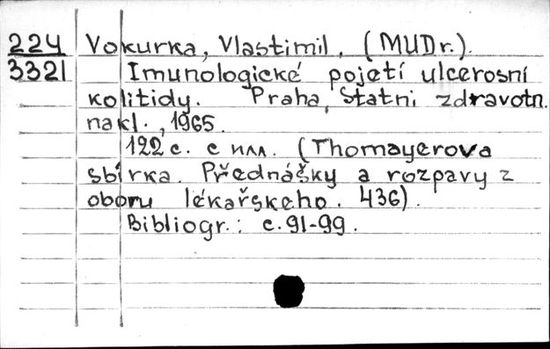 224 Vokurka, Vlastimil, (MUDr.).
3321 Imunologické pojetí ulcerosní
kolitidy. Praha, Statni zdravotn.
nakl., 1965.
122 с. с илл. (Thomayerova
sbírka. Přednášky a rozpavy z
oboru lékařskeho. 436).
Bibliogr.: с. 91-99.